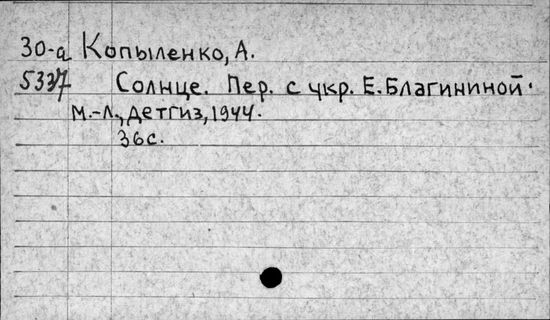 30-а Копыленко, А.
5337 Солнце. Пер. с укр. Е. Благининой.
М.-Л., Детгиз, 1944.
36с.